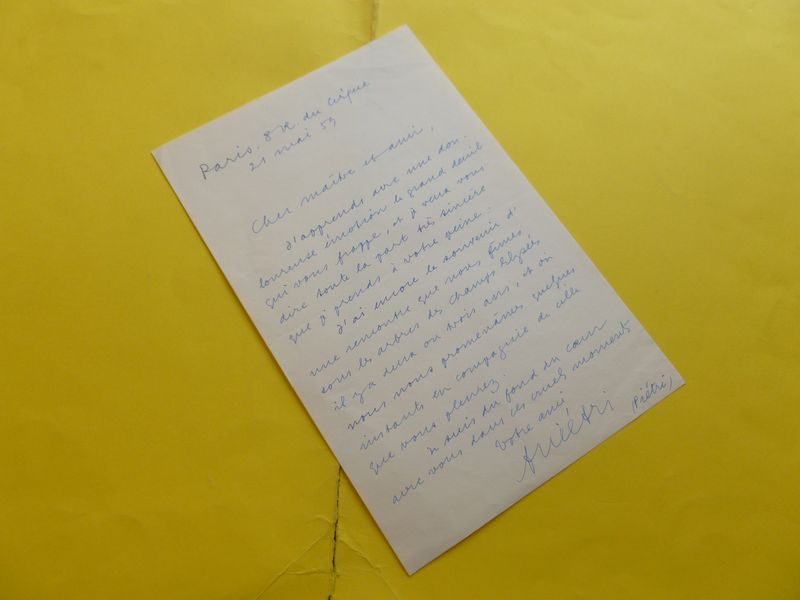 Paris. 8 R. du Cirque
21 mai 59
Cher maître et ami,
J'apprends avec une dou-
loureuse émotion le grand deuil
qui vous frappe, et je veux vous
dire toute la part très sincère
que je prends à votre peine.
J'ai encore le souvenir d'
une rencontre que nous fîmes
sous les arbres des Champs Elysées
il y a deux ou trois ans, et où
nous nous promenâmes quelques
instants en compagnie de celle
que vous pleurez.
Je suis du fond du cœur
avec vous dans ces cruels moments
Votre ami
(Piétri)